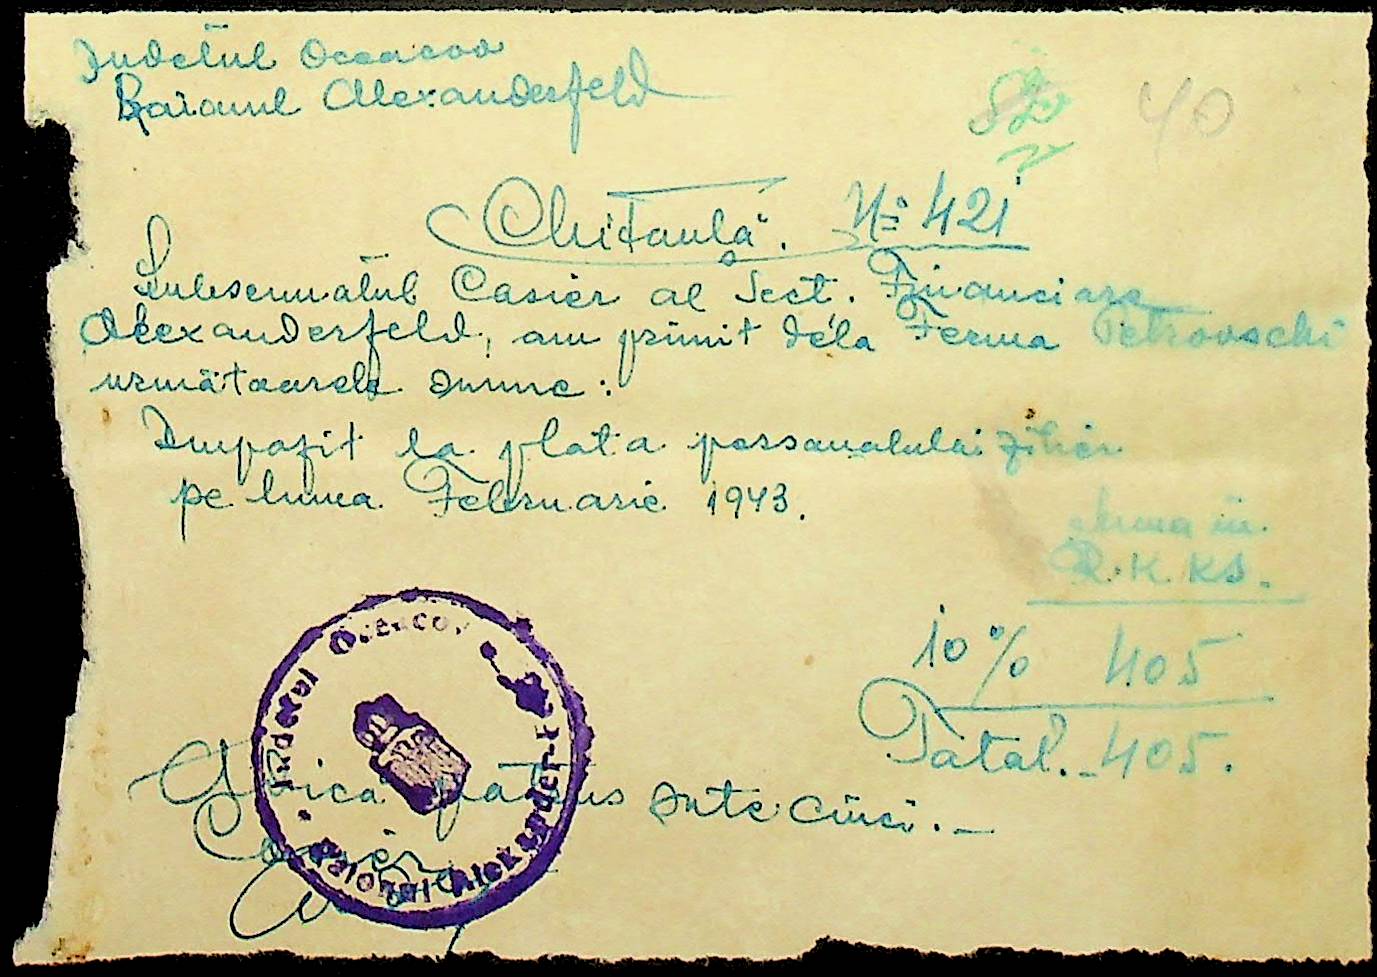 Judetul Oceacov
Raionul Alexanderfeld
40
Chitanță. No 421
Subsemnatul Casier al Sect. Financiare
Alexanderfeld, am primit dela Ferma Petrovschi
următoarele sume:
Impozit la plata personalului zilier
pe luna Februarie 1943.
Suma în
R.K.KS.
10% 405
Total. - 405.
Adica patrus sute cinci. -
Casier
Judetul Oceacov
Raionul Aleksanderfeld